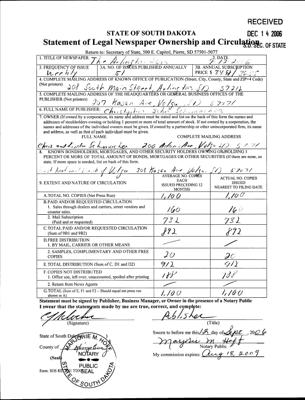 RECEIVED
DEC 14 2006
S.D. SEC. OF STATE
STATE OF SOUTH DAKOTA
Statement of Legal Newspaper Ownership and Circulation
Return to: Secretary of State, 500 E. Capitol, Pierre, SD 57501-5077
1. TITLE OF NEWSPAPER The Arlington
2. DATE
3. FREQUENCY OF ISSUE
Weekly
3A. NO. OF ISSUES PUBLISHED ANNUALLY
51
3B. ANNUAL SUBSCRIPTION
PRICE $
4. COMPLETE MAILING ADDRESS OF KNOWN OFFICE OF PUBLICATION (Street, City, County, State and ZIP+4 Code)
(Not printers)
Main Street Arlington SD 57212
5. COMPLETE MAILING ADDRESS OF THE HEADQUARTERS OR GENERAL BUSINESS OFFICES OF THE
PUBLISHER (Not printers)
Kasan Ave Volga, SD 57071
6. FULL NAME OF PUBLISHER
7. OWNER (If owned by a corporation, its name and address must be stated and list on the back of this form the names and
addresses of stockholders owning or holding 1 percent or more of total amount of stock. If not owned by a corporation, the
names and addresses of the individual owners must be given. If owned by a partnership or other unincorporated firm, its name
and address, as well as that of each individual must be given.
FULL NAME
COMPLETE MAILING ADDRESS
Kasan Ave Volga, SD 57071
8. KNOWN BONDHOLDERS, MORTGAGEES, AND OTHER SECURITY HOLDERS OWNING OR HOLDING 1
PERCENT OR MORE OF TOTAL AMOUNT OF BONDS, MORTGAGES OR OTHER SECURITIES (If there are none, so
state. If more space is needed, list on back of this form.
Kasan Ave Volga, SD 57071
9. EXTENT AND NATURE OF CIRCULATION
AVERAGE NO. COPIES EACH ISSUED PRECEDING 12 MONTHS
ACTUAL NO. COPIES ISSUED NEAREST TO FILING DATE
A. TOTAL NO. COPIES (Net Press Run) 1,100 1,100
B. PAID AND/OR REQUESTED CIRCULATION
1. Sales through dealers and carriers, street vendors and
counter sales. 160 160
2. Mail Subscription
(Paid and or requested) 732 732
C. TOTAL PAID AND/OR REQUESTED CIRCULATION
(Sum of 9B1 and 9B2) 892 892
D. FREE DISTRIBUTION
1. BY MAIL, CARRIER OR OTHER MEANS
2. SAMPLES, COMPLIMENTARY AND OTHER FREE
COPIES 20 20
E. TOTAL DISTRIBUTION (Sum of C, D1 and D2) 912 912
F. COPIES NOT DISTRIBUTED
1. Office use, left over, unaccounted, spoiled after printing 188 188
2. Return from News Agents
G. TOTAL (Sum of E, F1 and F2 – Should equal net press run
shown in A) 1,100 1,100
Statement must be signed by Publisher, Business Manager, or Owner in the presence of a Notary Public
I swear that the statements made by me are true, correct, and complete:
Publisher
(Signature) (Title)
State of South Dakota
County of
(Seal)
NOTARY
PUBLIC
SEAL
SOUTH DAKOTA
Sworn to before me this day of Sept 2006
Marjorie M. Hoff
Notary Public
My commission expires: Aug 18, 2009